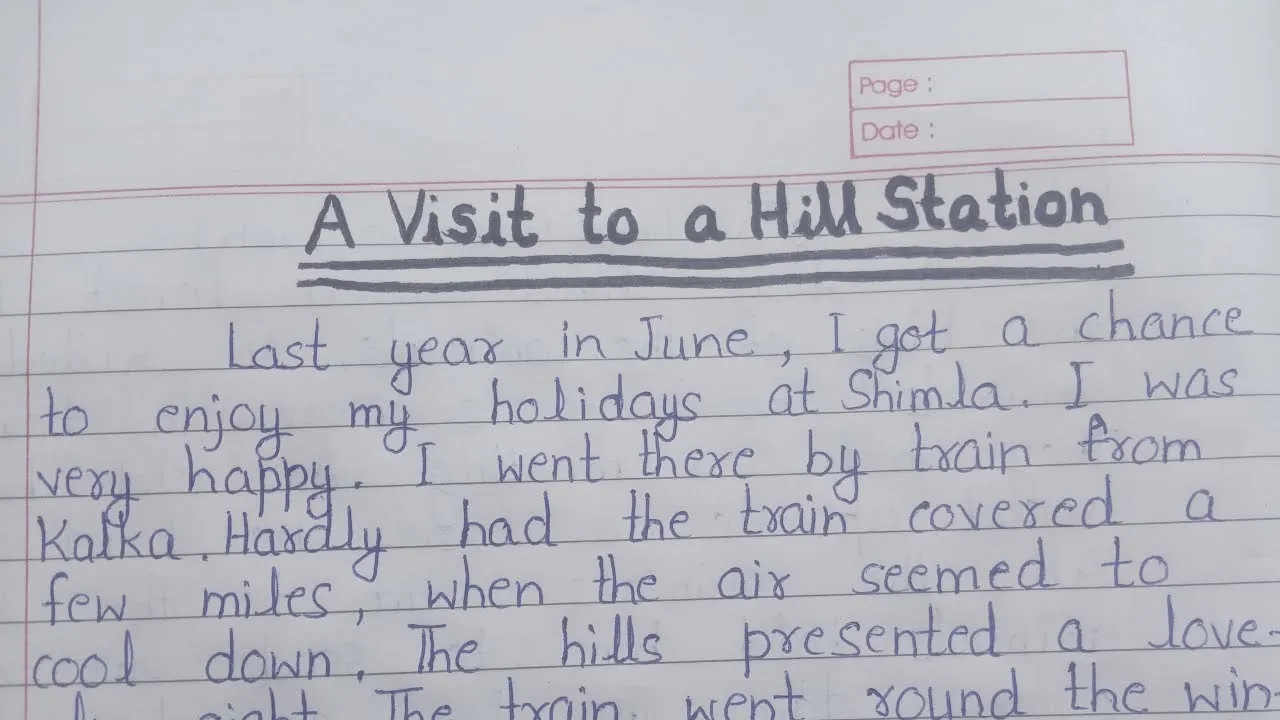 Page :
Date :
A Visit to a Hill Station
Last year in June, I got a chance
to enjoy my holidays at Shimla. I was
very happy. I went there by train from
Kalka. Hardly had the train covered a
few miles, when the air seemed to
cool down. The hills presented a love-
sight. The train went round the win-